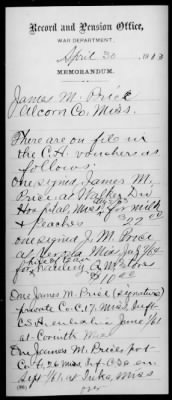 Record and Pension Office,
WAR DEPARTMENT,
April 30
MEMORANDUM.
James M. Price
Alcorn Co, Miss.
There are on file in
the C.H. vouchers as
follows:
One signed James M.
Price at Div
Hospital, Miss, for milk
& peaches
one signed J. M. Price
at Miss
for
$10.00
One James M. Price (signature)
private Co. C, 17, Miss, Inft.
C.S.A. enlisted June 1/61
at Corinth Miss
One James M. Price, pvt
Co. 26 Miss. Inf. C.S.A. en.
Sept 1/61 at Iuka, Miss
over